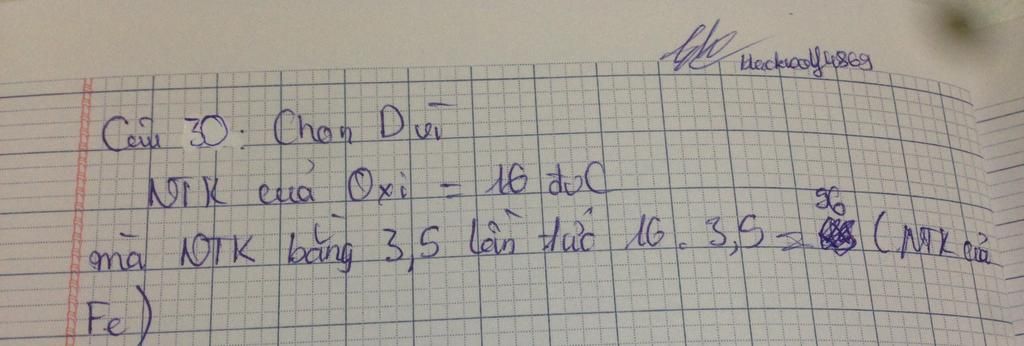 blackwolf4869
Câu 30: Chọn D vì
NTK của Oxi = 16 đvC
mà NTK bằng 3,5 lần tức 16. 3,5 = 56 (NTK của
Fe)